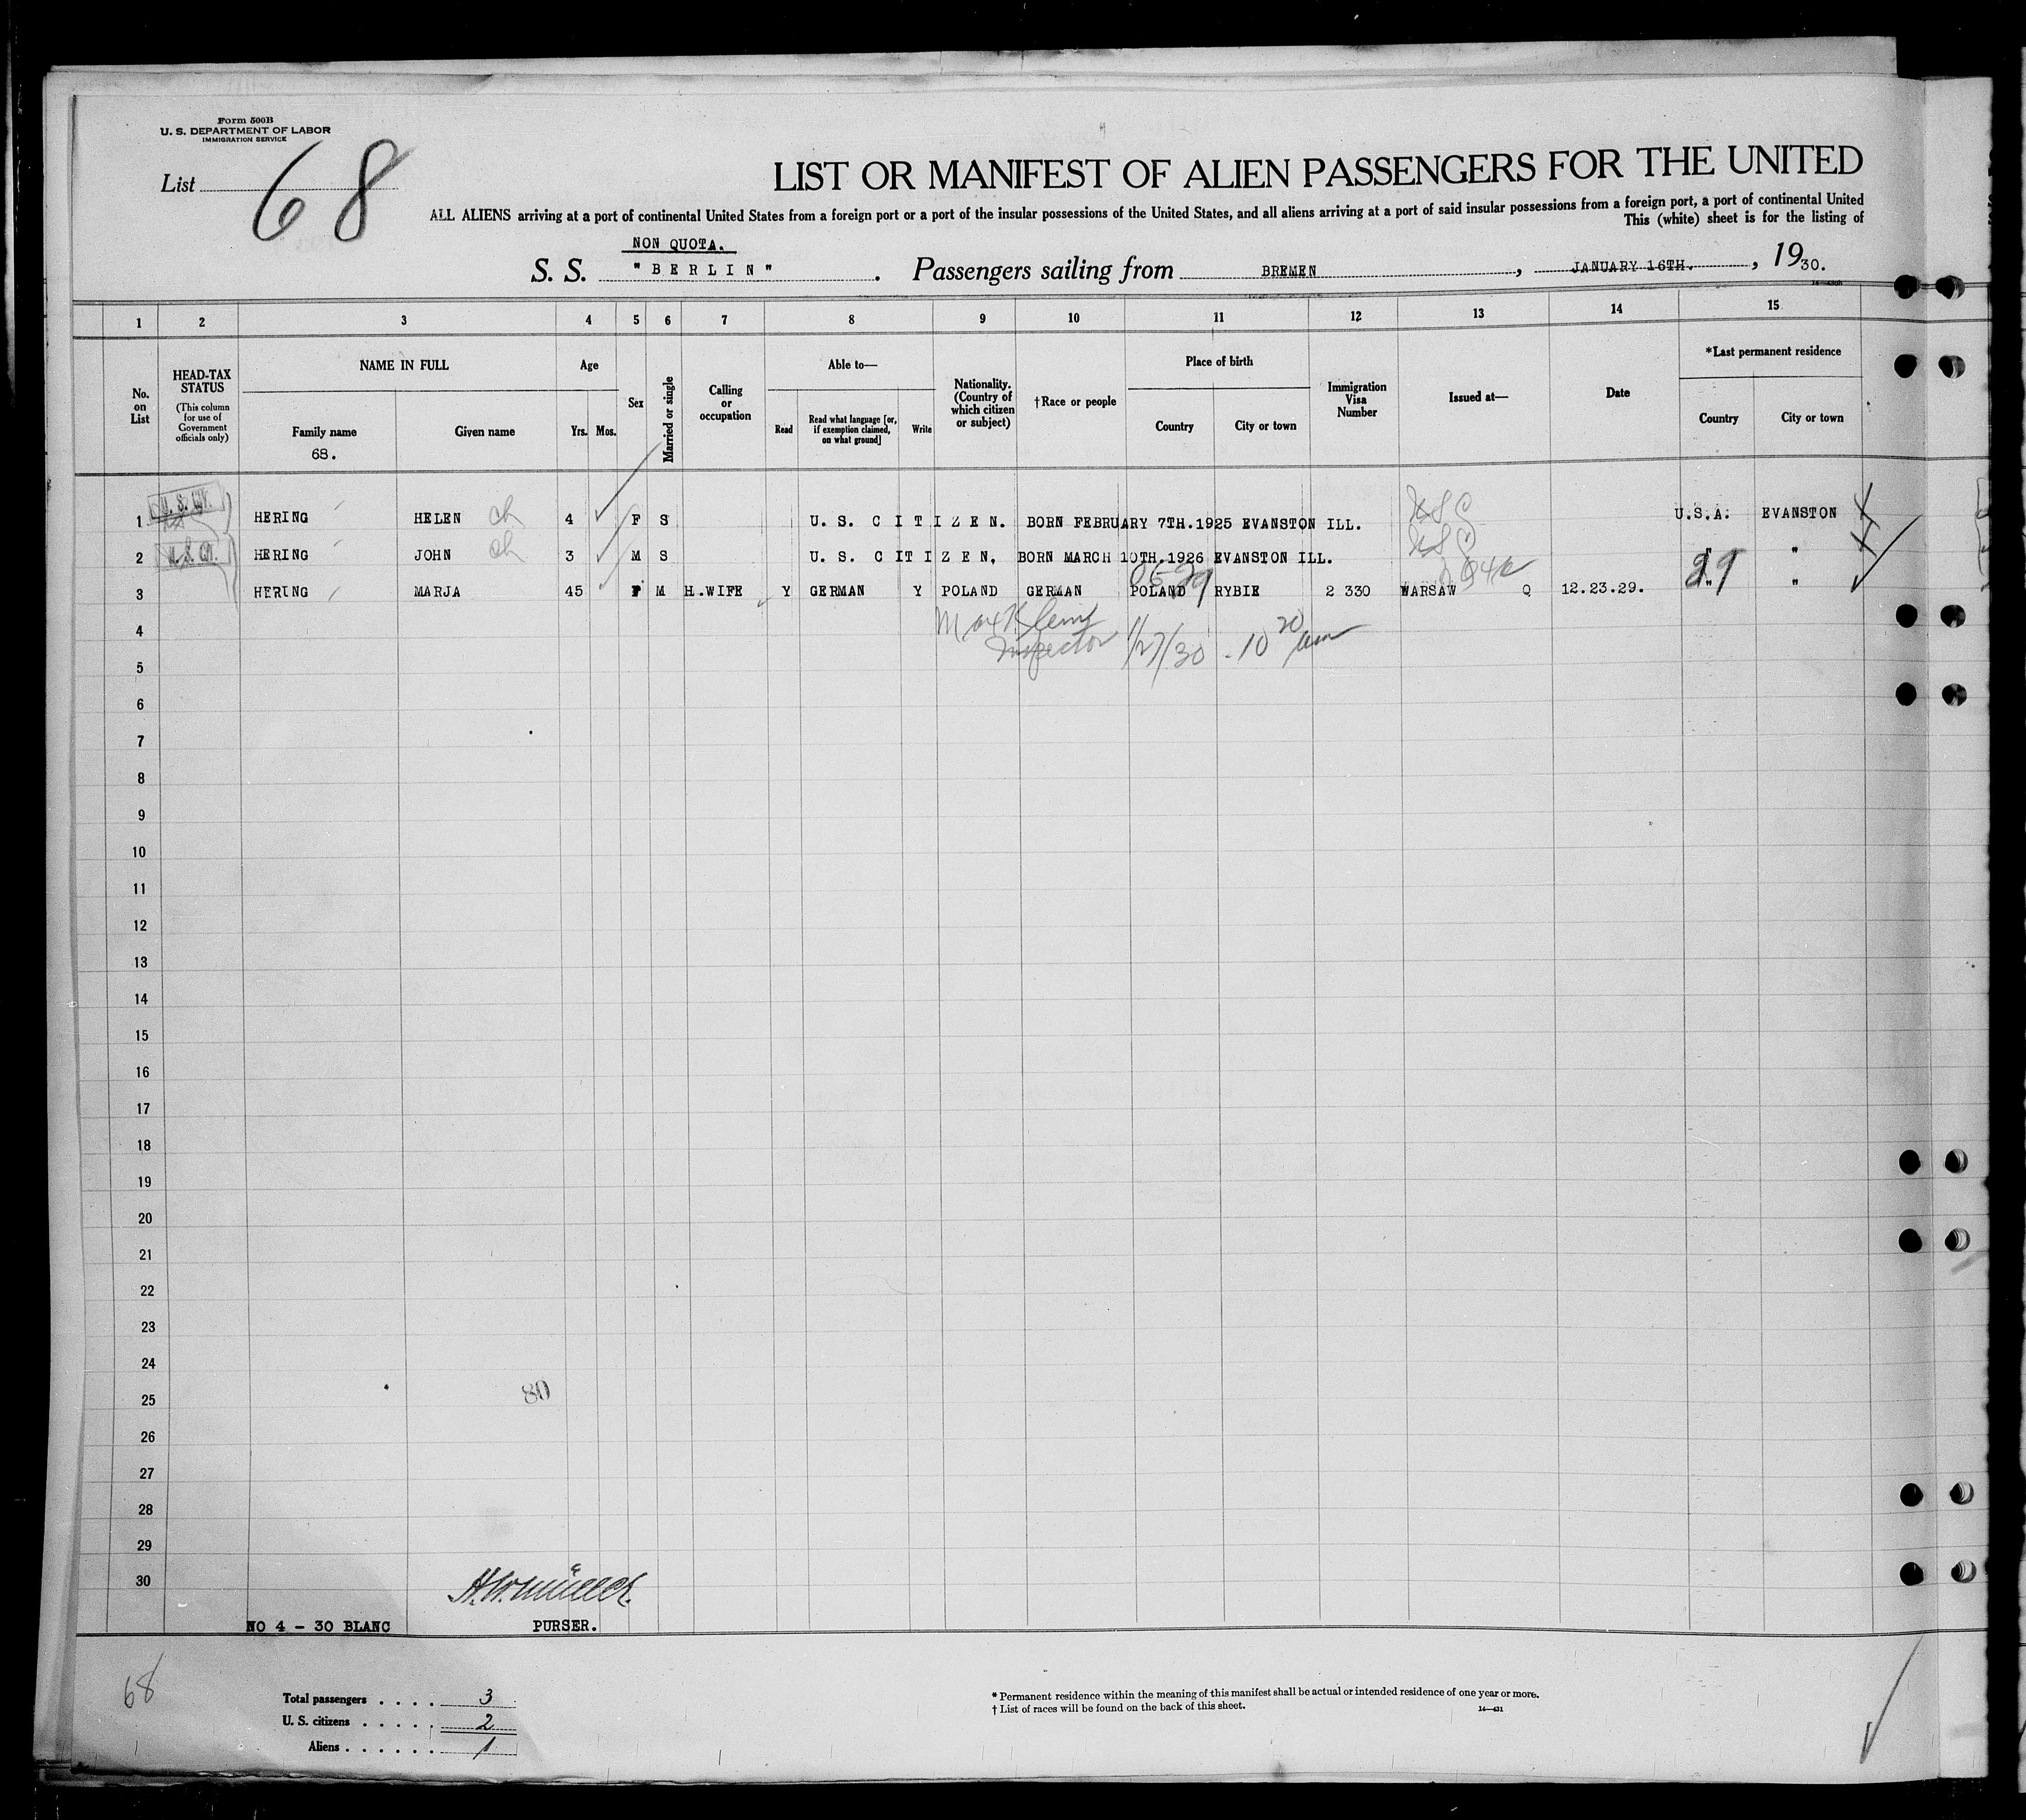 Form 500B
U. S. DEPARTMENT OF LABOR
IMMIGRATION SERVICE
List 68
LIST OR MANIFEST OF ALIEN PASSENGERS FOR THE UNITED
ALL ALIENS arriving at a port of continental United States from a foreign port or a port of the insular possessions of the United States, and all aliens arriving at a port of said insular possessions from a foreign port, a port of continental United
This (white) sheet is for the listing of
NON QUOTA.
S. S. "BERLIN". Passengers sailing from BREMEN, JANUARY 16TH., 1930.
1 2 3 4 5 6 7 8 9 10 11 12 13 14 15
No. on List
HEAD-TAX STATUS (This column for use of Government officials only)
NAME IN FULL
Family name
68.
Given name
Age
Yrs. Mos.
Sex
Married or single
Calling or occupation
Able to—
Read
Read what language [or, if exemption claimed, on what ground]
Write
Nationality. (Country of which citizen or subject)
†Race or people
Place of birth
Country
City or town
Immigration Visa Number
Issued at—
Date
*Last permanent residence
Country
City or town
1 U. S. CIT. HERING HELEN ch 4 F S U. S. CITIZEN. BORN FEBRUARY 7TH.1925 EVANSTON ILL. USC U.S.A. EVANSTON
2 U. S. CIT. HERING JOHN ch 3 M S U. S. CITIZEN, BORN MARCH 10TH.1926 EVANSTON ILL. USC " "
3 HERING MARJA 45 F M H.WIFE Y GERMAN Y POLAND GERMAN POLAND RYBIE 2 330 WARSAW Q 12.23.29. " "
29
4 Inspector 1/27/30 - 10 20 am
5
6
7
8
9
10
11
12
13
14
15
16
17
18
19
20
21
22
23
24
25
80
26
27
28
29
30
NO 4 - 30 BLANC
PURSER.
68
Total passengers . . . . 3
U. S. citizens . . . . . 2
Aliens . . . . . . 1
* Permanent residence within the meaning of this manifest shall be actual or intended residence of one year or more.
† List of races will be found on the back of this sheet.
14—431